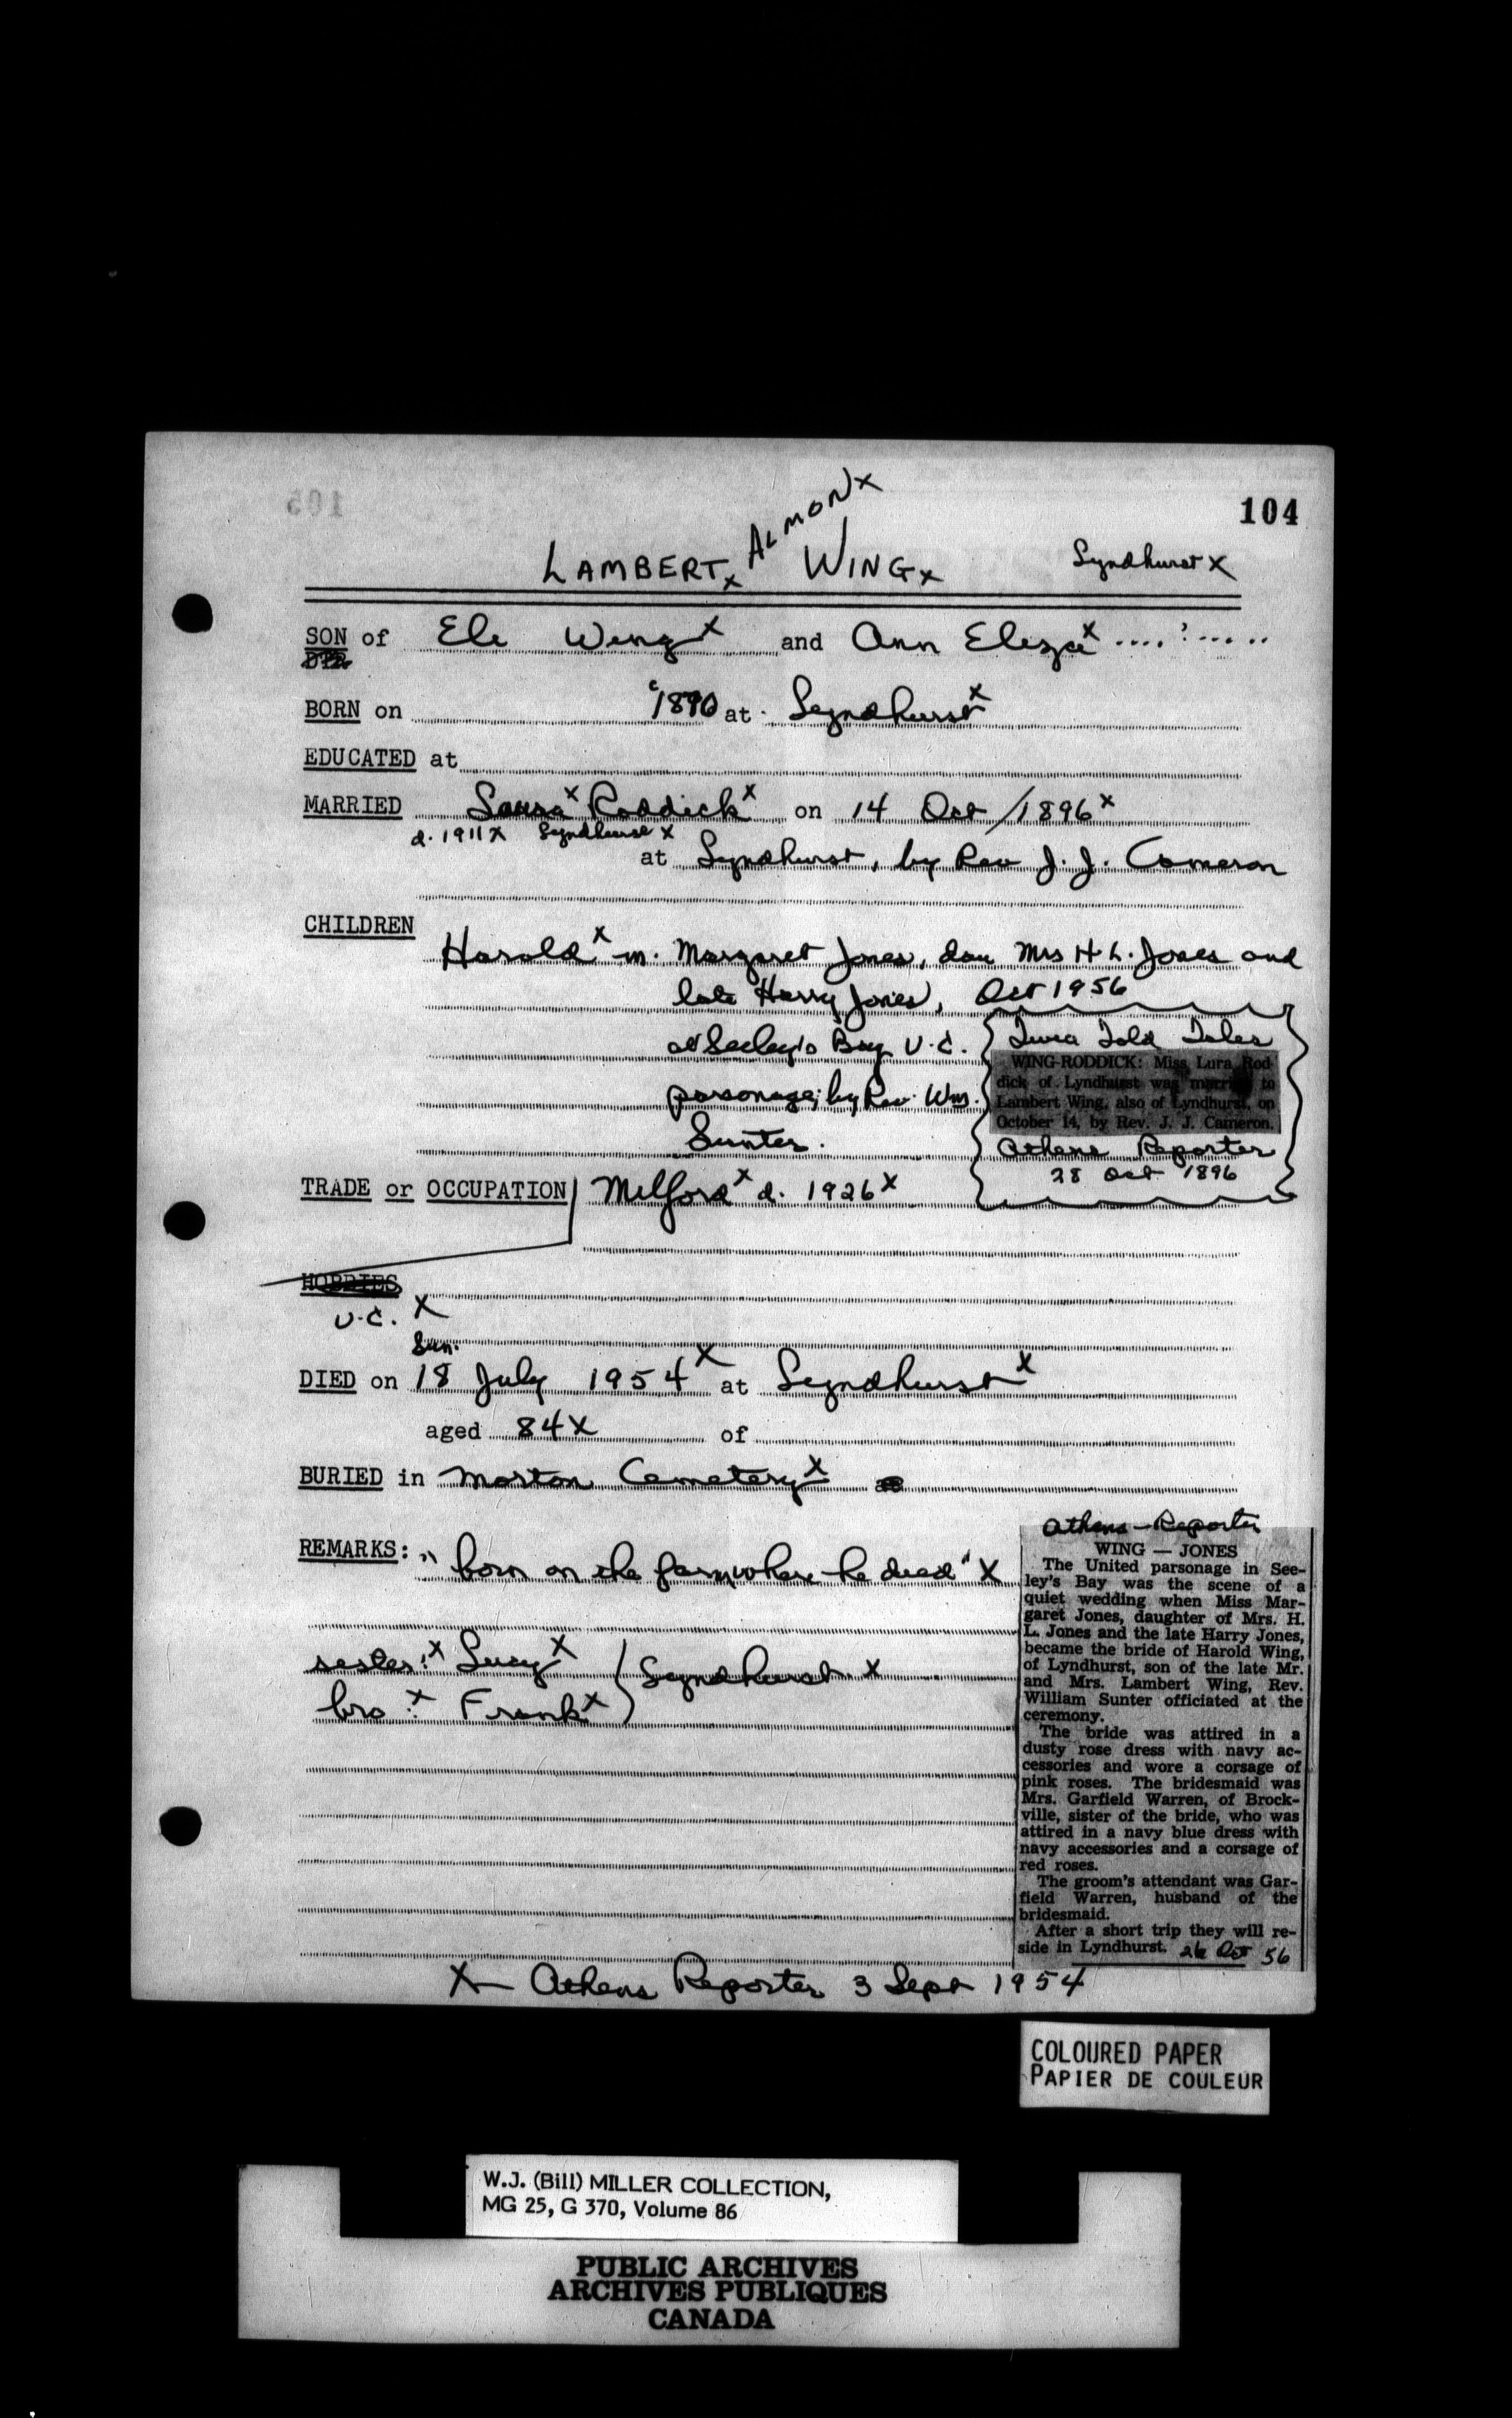 104
ALMON x
LAMBERT x WING x Lyndhurst x
SON of Eli Wing x and Ann Eliza x ....?.....
BORN on c 1870 at Lyndhurst x
EDUCATED at
MARRIED Laura x Roddick x on 14 Oct/1896 x
d. 1911 x Lyndhurst x
at Lyndhurst, by Rev J. J. Cameron
CHILDREN
Harold x m. Margaret Jones, dau Mrs H. L. Jones and
late Harry Jones, Oct 1956
at Seeley's Bay U.C.
parsonage; by Rev. Wm.
Sunter.
Twice Told Tales
WING-RODDICK: Miss Lura Rod-
dick of Lyndhurst was married to
Lambert Wing, also of Lyndhurst, on
October 14, by Rev. J. J. Cameron.
Athens Reporter
28 Oct 1896
TRADE or OCCUPATION Milford x d. 1926 x
HOBBIES
U.C. x
Sun.
DIED on 18 July 1954 x at Lyndhurst x
aged 84 x of
BURIED in Morton Cemetery x
REMARKS: "born on the farm where he died" x
sister: x Lucy x } Lyndhurst x
bro: x Frank x
Athens - Reporter
WING — JONES
The United parsonage in See-
ley's Bay was the scene of a
quiet wedding when Miss Mar-
garet Jones, daughter of Mrs. H.
L. Jones and the late Harry Jones,
became the bride of Harold Wing,
of Lyndhurst, son of the late Mr.
and Mrs. Lambert Wing, Rev.
William Sunter officiated at the
ceremony.
The bride was attired in a
dusty rose dress with navy ac-
cessories and wore a corsage of
pink roses. The bridesmaid was
Mrs. Garfield Warren, of Brock-
ville, sister of the bride, who was
attired in a navy blue dress with
navy accessories and a corsage of
red roses.
The groom's attendant was Gar-
field Warren, husband of the
bridesmaid.
After a short trip they will re-
side in Lyndhurst. 26 Oct 56
X— Athens Reporter 3 Sept 1954
COLOURED PAPER
PAPIER DE COULEUR
W.J. (Bill) MILLER COLLECTION,
MG 25, G 370, Volume 86
PUBLIC ARCHIVES
ARCHIVES PUBLIQUES
CANADA